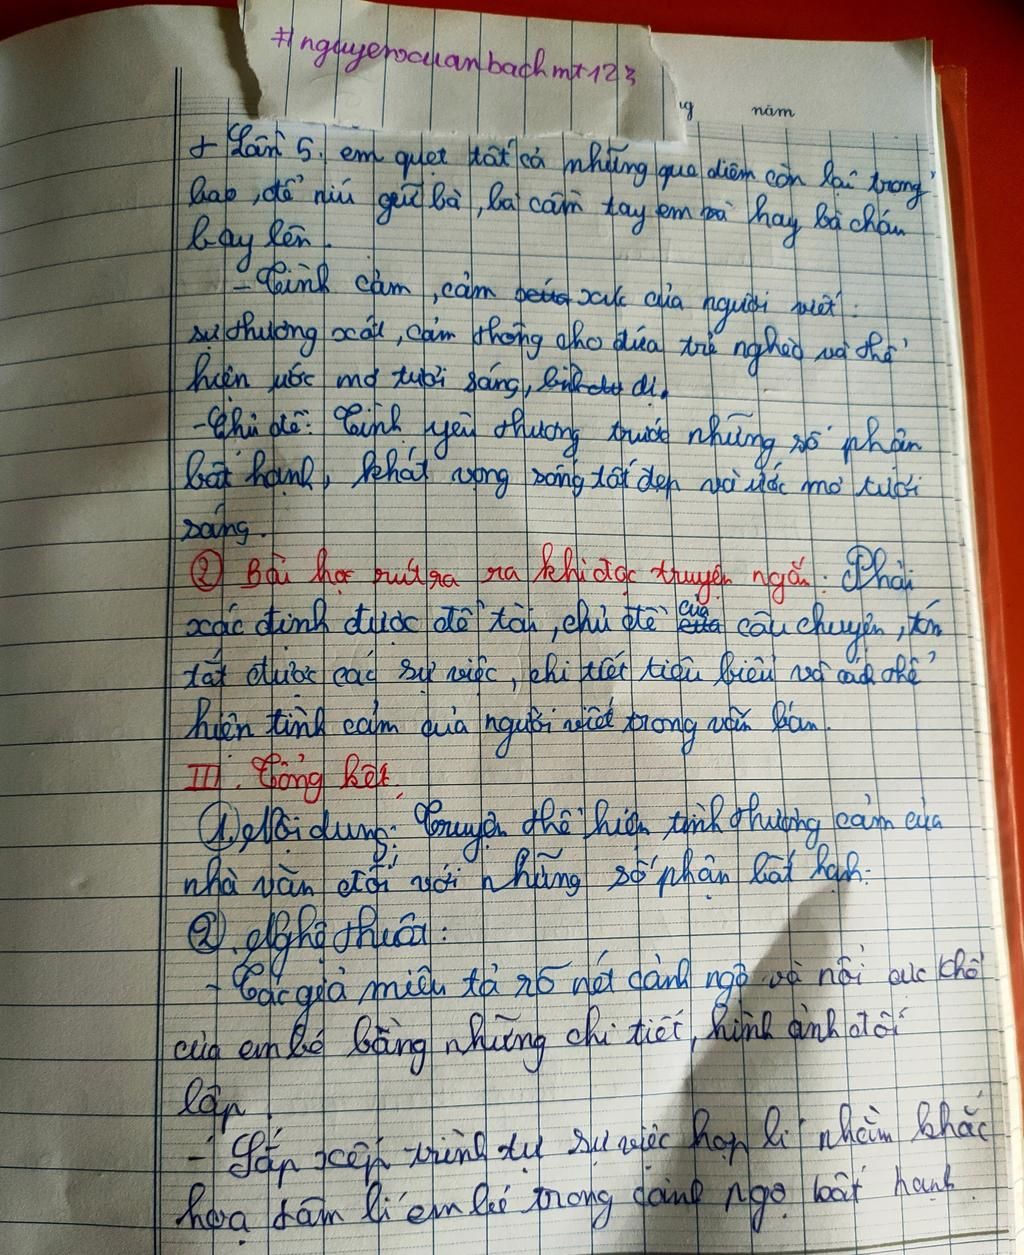 #nguyenxuanbachmt123
năm
+ Lần 5. em quẹt tất cả những que diêm còn lại trong
bao, để níu giữ bà, bà cầm tay em và hay bà cháu
bay lên.
- Tình cảm, cảm xúc của người viết:
sự thương xót, cảm thông cho đứa trẻ nghèo và thể
hiện ước mơ tươi sáng, dị.
- Chủ đề: Tình yêu thương trước những số phận
bất hạnh, khát vọng sống tốt đẹp và ước mơ tươi
sáng.
② Bài học rút ra ra khi đọc truyện ngắn: Phải
xác định được đề tài, chủ đề của câu chuyện, tóm
tắt được các sự việc, chi tiết tiêu biểu và cách thể
hiện tình cảm của người viết trong văn bản.
III. Tổng kết.
① Nội dung: Truyện thể hiện tình thương cảm của
nhà văn đối với những số phận bất hạnh.
②. Nghệ thuật:
- Tác giả miêu tả rõ nét cảnh ngộ và nỗi cực khổ
của em bé bằng những chi tiết, hình ảnh đối
lập.
- Sắp xếp trình tự sự việc hợp lí nhằm khắc
họa tâm lí em bé trong cảnh ngộ bất hạnh.